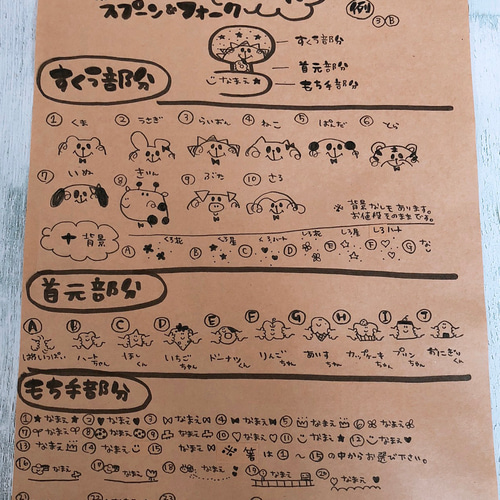 スプーン&フォーク
例
③⑧
すくう部分
首元部分
もち手部分
なまえ★
すくう部分
① くま ② うさぎ ③ らいおん ④ ねこ ⑤ ぱんだ ⑥ とら
⑦ いぬ ⑧ きりん ⑨ ぶた ⑩ さる
※ 背景なしもあります。
お値段そのままです。
+ 背景
くろ花 くろ星 くろハート しろ花 しろ星 しろハート
A B C D E F G なし
首元部分
A B C D E F G H I J
ハートちゃん ほしくん いちごちゃん ドーナツくん りんごちゃん あいすちゃん カップケーキちゃん プリンちゃん おにぎりくん
もち手部分
① ★なまえ★ ② ♥なまえ♥ ③ なまえ ④ なまえ ⑤ なまえ ⑥ なまえ
⑦ なまえ ⑧ なまえ ⑨ なまえ ⑩ ♡なまえ♡ ⑪ なまえ★ ⑫ なまえ♥
⑬ なまえ ⑭ なまえ ⑮ なまえ ※ 箸は①〜⑮の中からお選び下さい。
⑯ なまえ ⑰ なまえ ⑱ なまえ ⑲ なまえ ⑳ なまえ
21 22 23